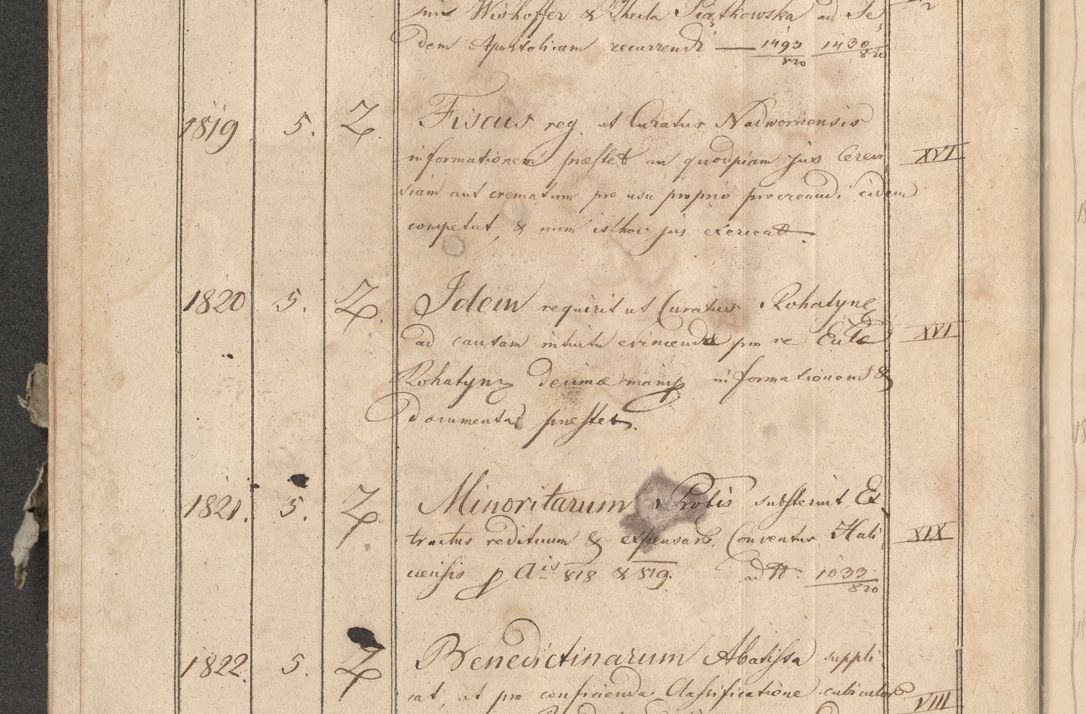 Wishoffer & Thecla Piątkowska ad Se
dem Apostolicam recurrendi — 1493/820 1430/820
1819 5. Z. Fiscus reg. ut Curatus Nadwornensis
informationem præstet an quodpiam jus Cerevi XVI
siam aut crematum pro usu proprio procreandi eidem
competat, & num isthoc jus exerceat.
1820 5. Z. Idem requirit ut Curatus Rohatynę
ad cautam intuitu evincendæ pro re Eccłæ XVI
Rohatyn decimæ informationem &
documenta præstet.
1821. 5. Z Minoritarum Proełis substernit Ex
tractus redituum & expensarum Conventus Hali XIX
ciensis p Ais 818 & 819. ad N: 1033/820
1822. 5. Z Benedictinarum Abatissa suppli
cat, ut pro conficienda Classificatione cubiculor VIII